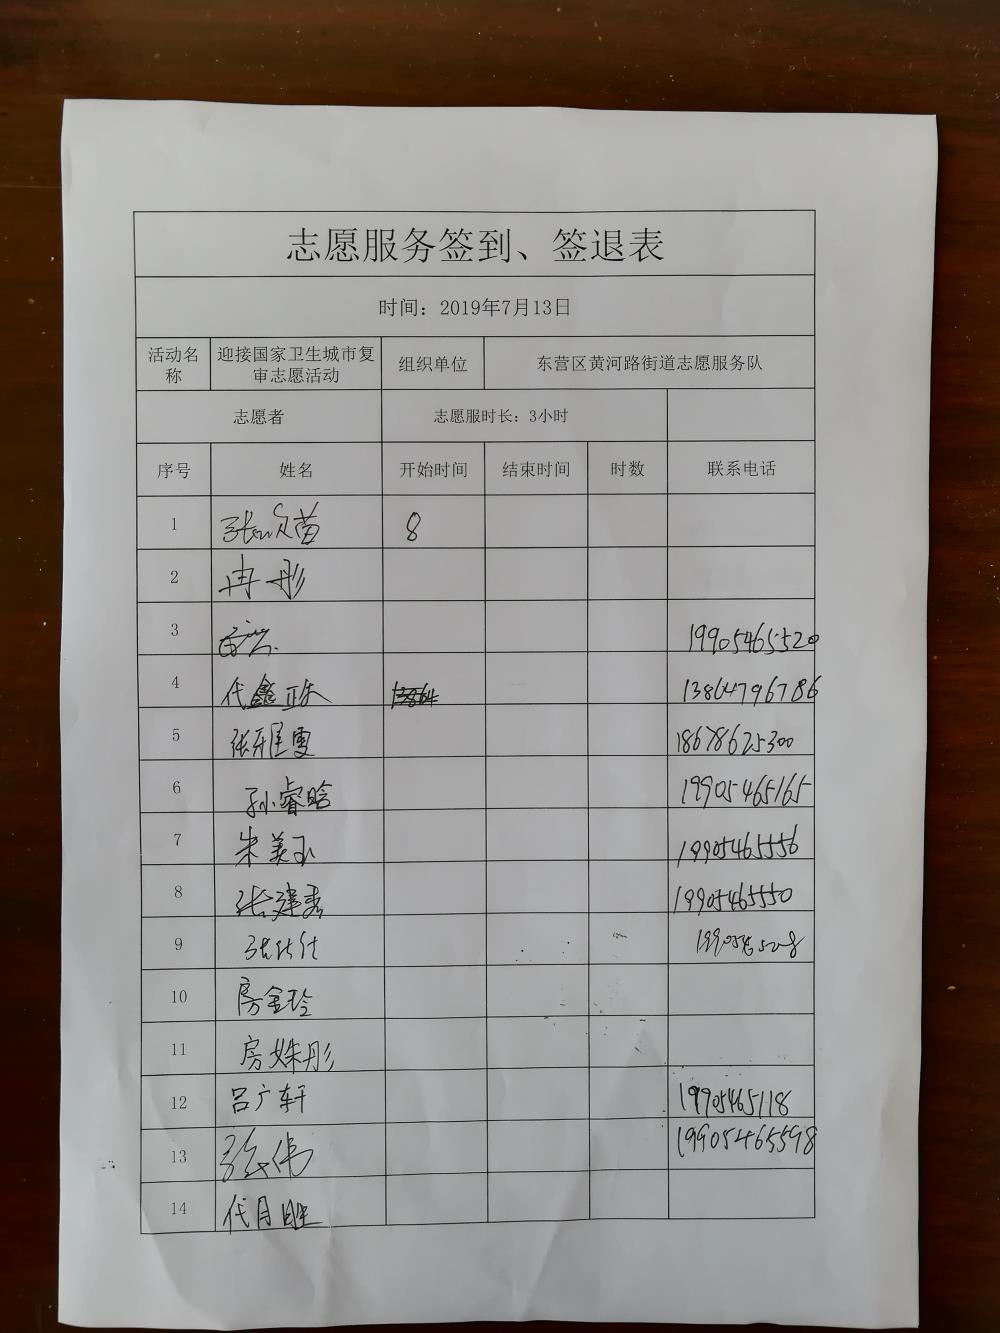 志愿服务签到、签退表
时间：2019年7月13日
活动名称 迎接国家卫生城市复审志愿活动 组织单位 东营区黄河路街道志愿服务队
志愿者 志愿服时长：3小时
序号 姓名 开始时间 结束时间 时数 联系电话
1 8
2 冉彤
3 19905465520
4 代鑫 13864796786
5 18678625300
6 孙睿晗 19905465165
7 朱美玉 19905465556
8 张建秀 19905465550
9
10 房金玲
11 房姝彤
12 吕广轩 19905465118
13 张伟 19905465598
14 代月